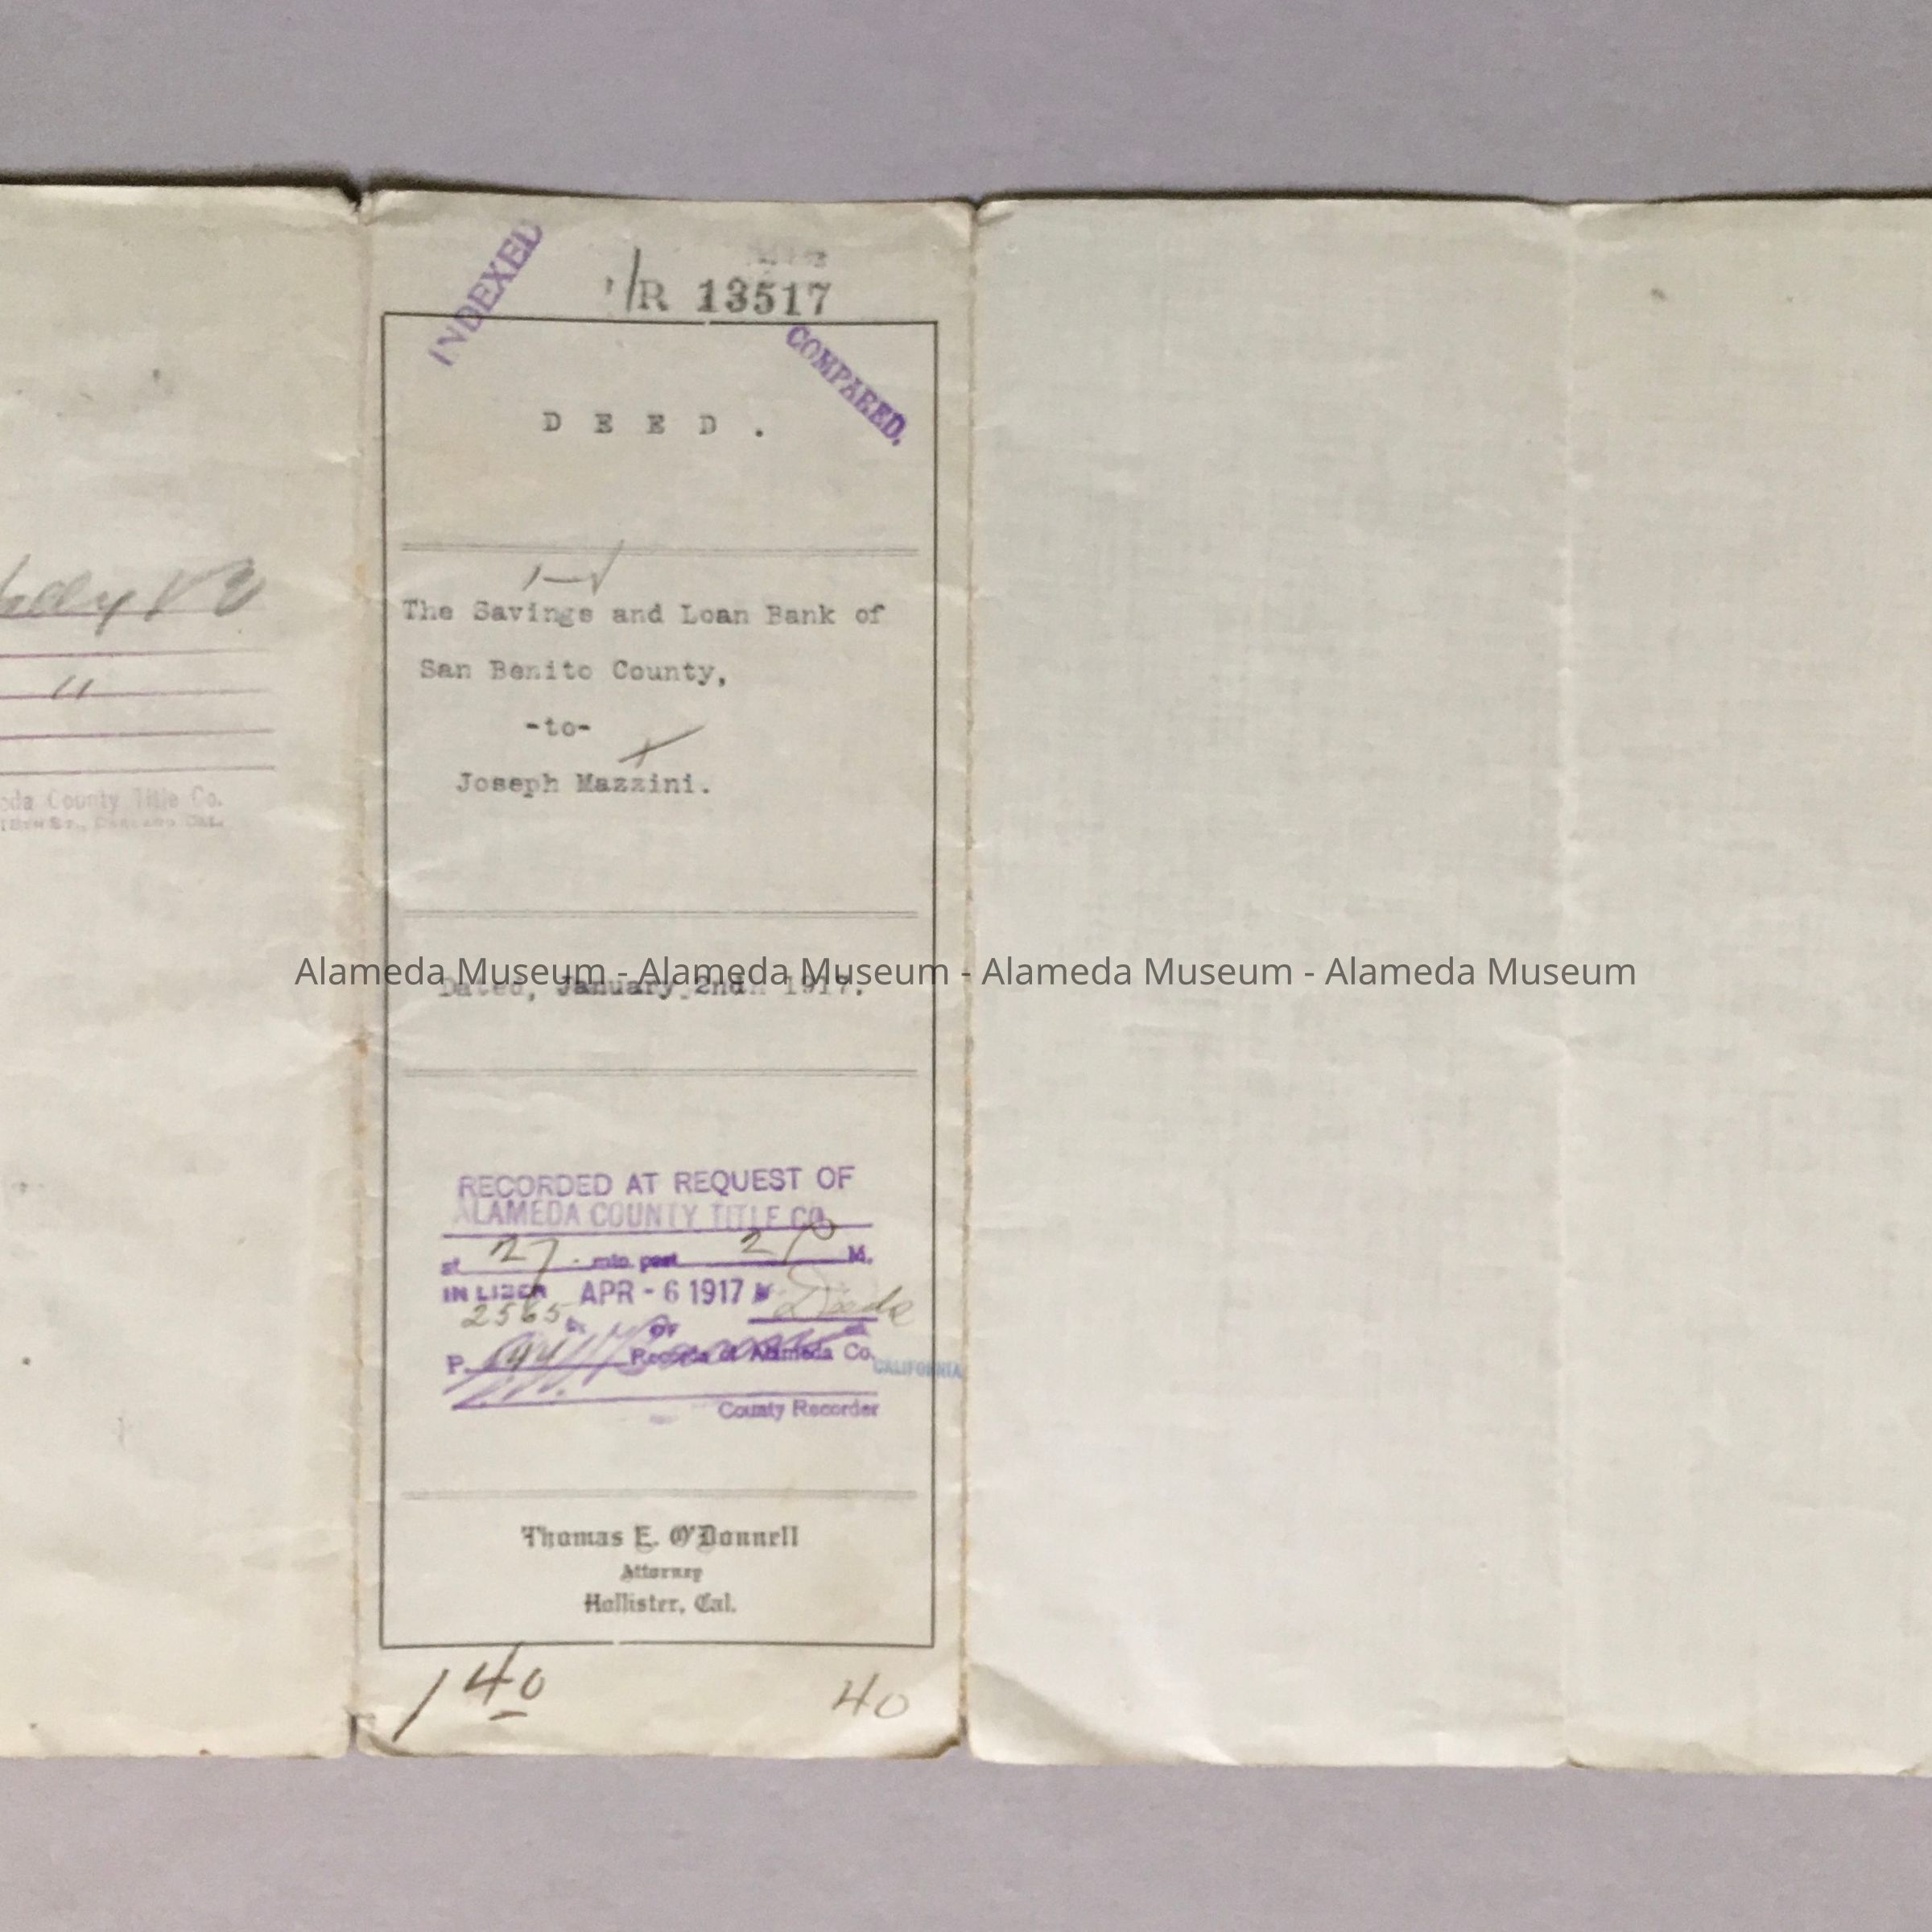 INDEXED
R 13517
COMPARED.
D E E D .
The Savings and Loan Bank of
San Benito County,
-to-
Joseph Mazzini.
Alameda Museum - Alameda Museum - Alameda Museum - Alameda Museum
Dated, January 2nd 1917.
RECORDED AT REQUEST OF
ALAMEDA COUNTY TITLE CO.
at 27 min. past 2 P M.
IN LIBER APR - 6 1917
2565 OF
P. Records of Alameda Co.
CALIFORNIA
County Recorder
Thomas E. O'Donnell
Attorney
Hollister, Cal.
140
40
"
County Title Co.